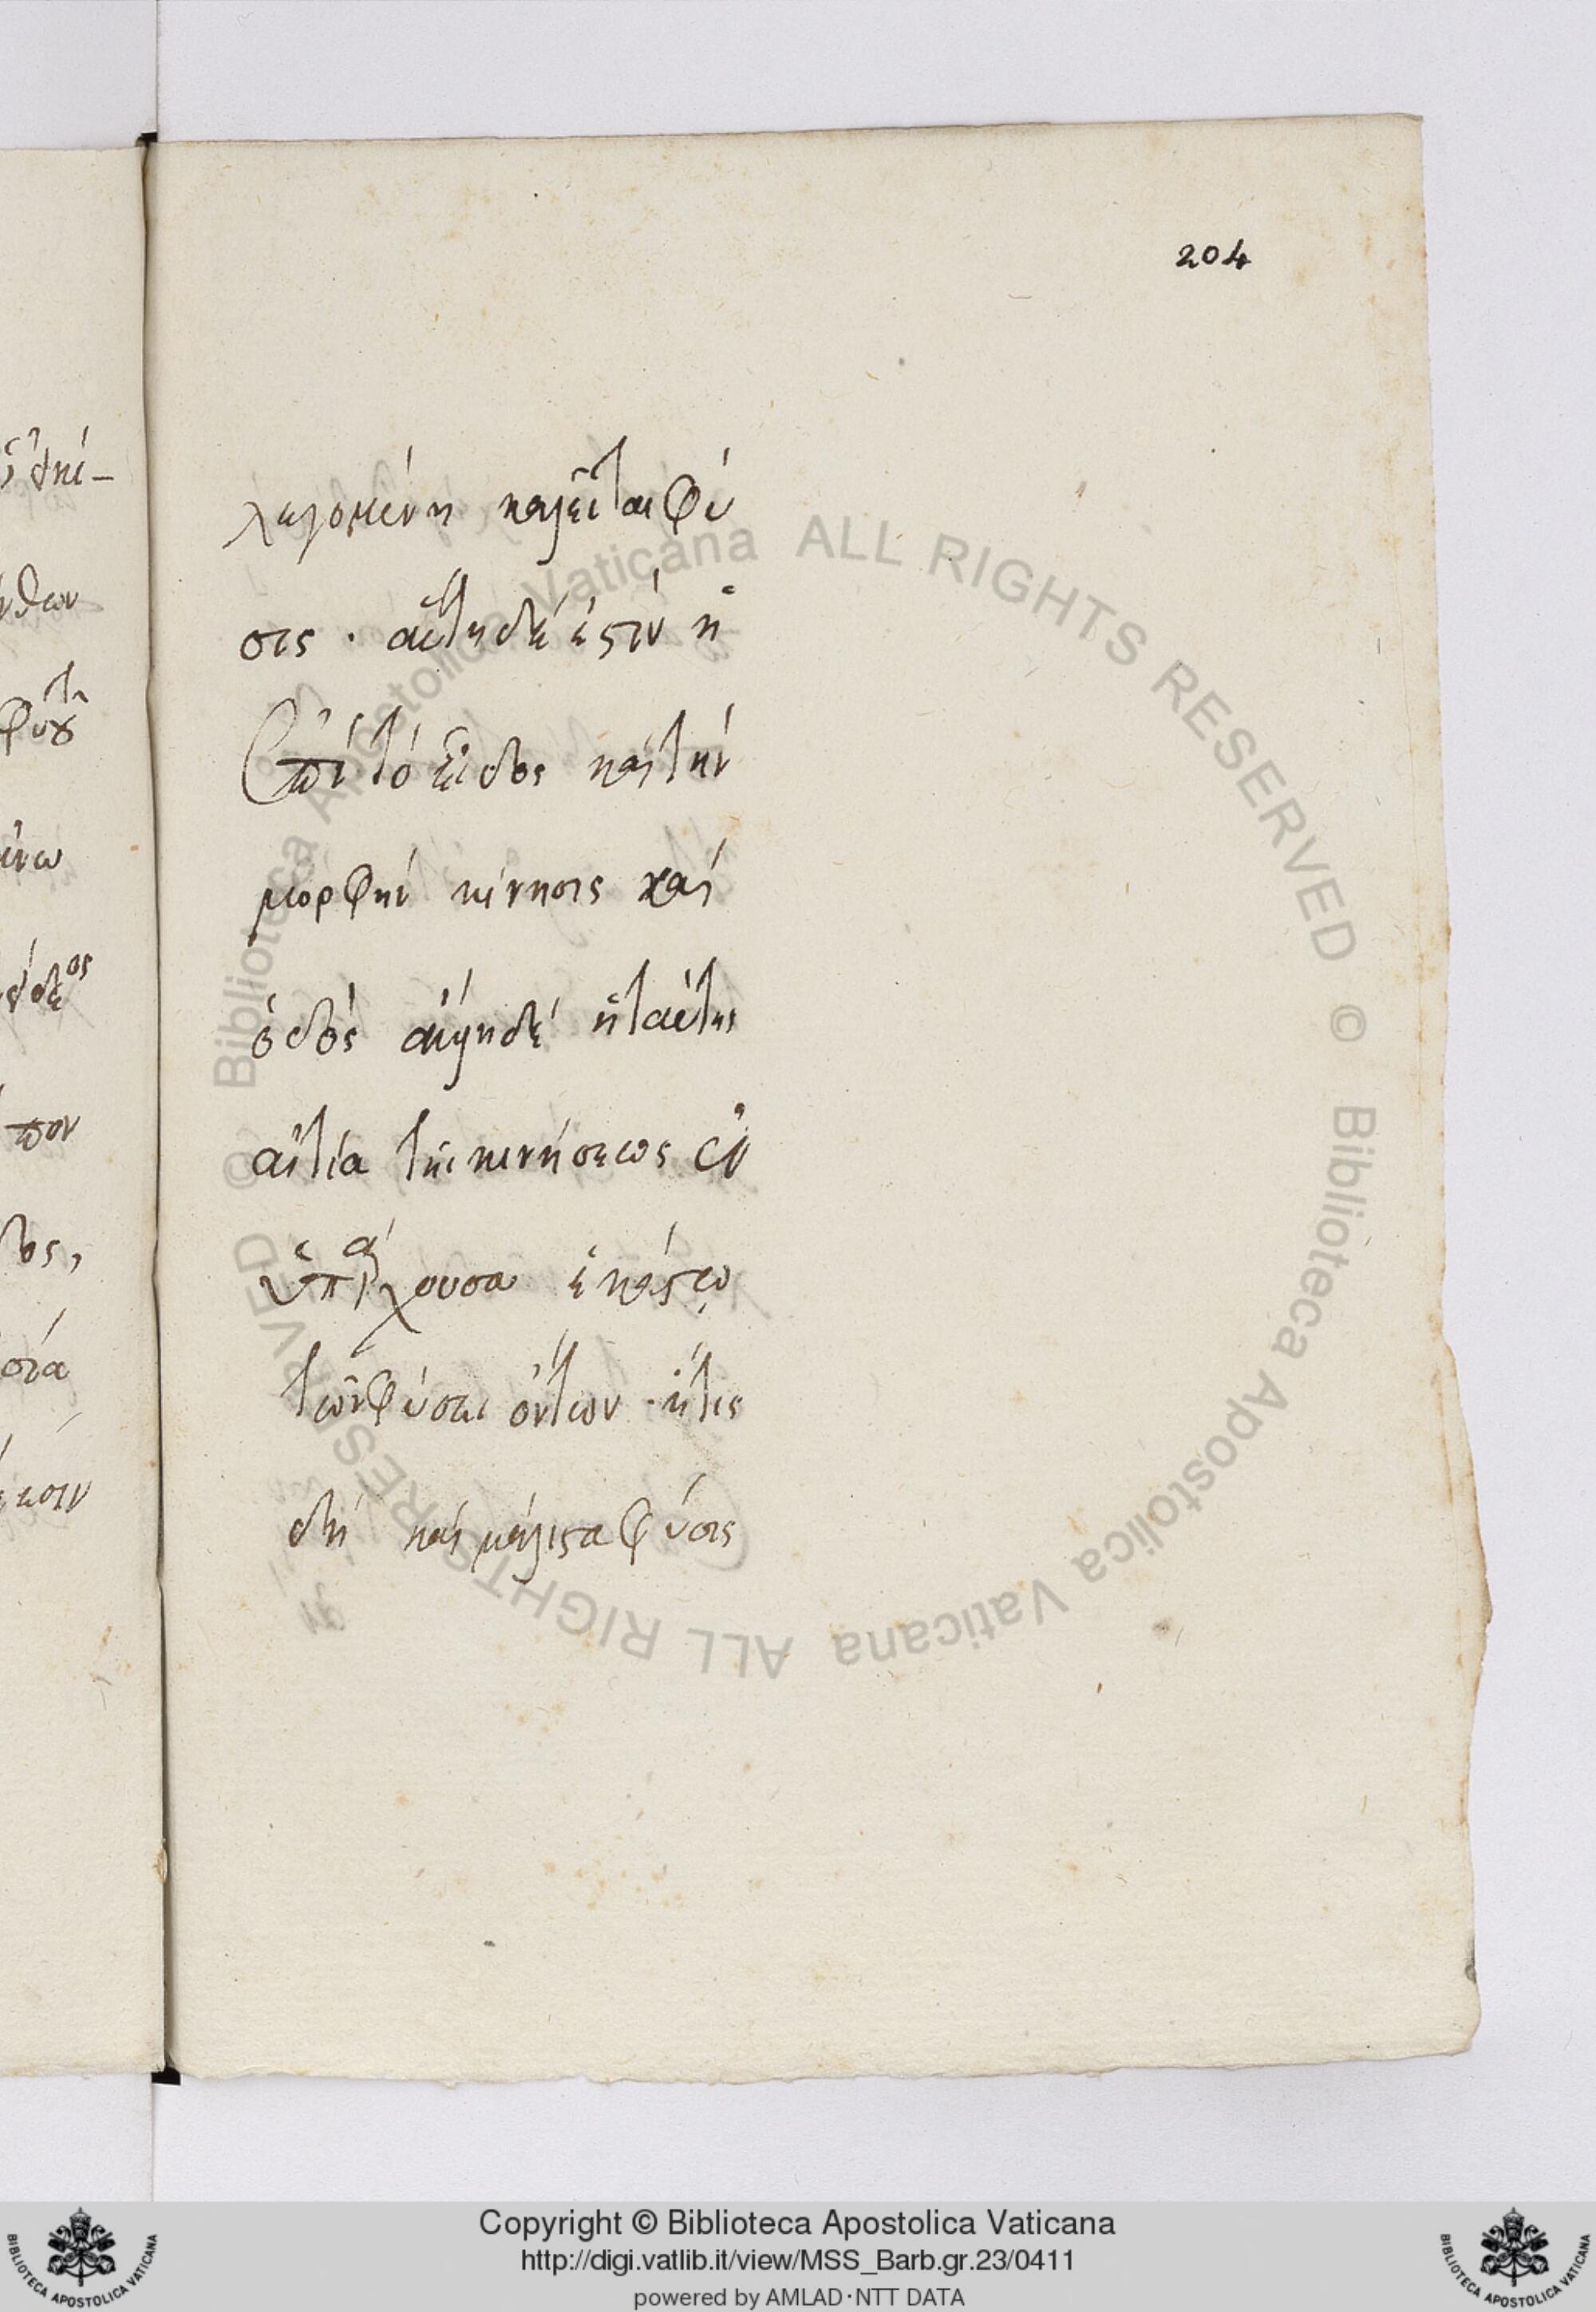 204
λεγομένη καλεῖται φύ
σις · αὕτη δέ ἐστιν ἡ
ἐπὶ τὸ εἶδος καὶ τὴν
μορφὴν κίνησις καὶ
ὁδός ἄλλη δέ ἡ ταύτης
αἰτία τῆς κινήσεως ἐν
ὑπάρχουσα ἑκάστῳ
τῶν φύσει ὄντων · ἥτις
δὴ καὶ μάλιστα φύσις
© Biblioteca Apostolica Vaticana ALL RIGHTS RESERVED © Biblioteca Apostolica Vaticana ALL RIGHTS RESERVED
Copyright © Biblioteca Apostolica Vaticana
http://digi.vatlib.it/view/MSS_Barb.gr.23/0411
powered by AMLAD·NTT DATA
BIBLIOTECA APOSTOLICA VATICANA
BIBLIOTECA APOSTOLICA VATICANA